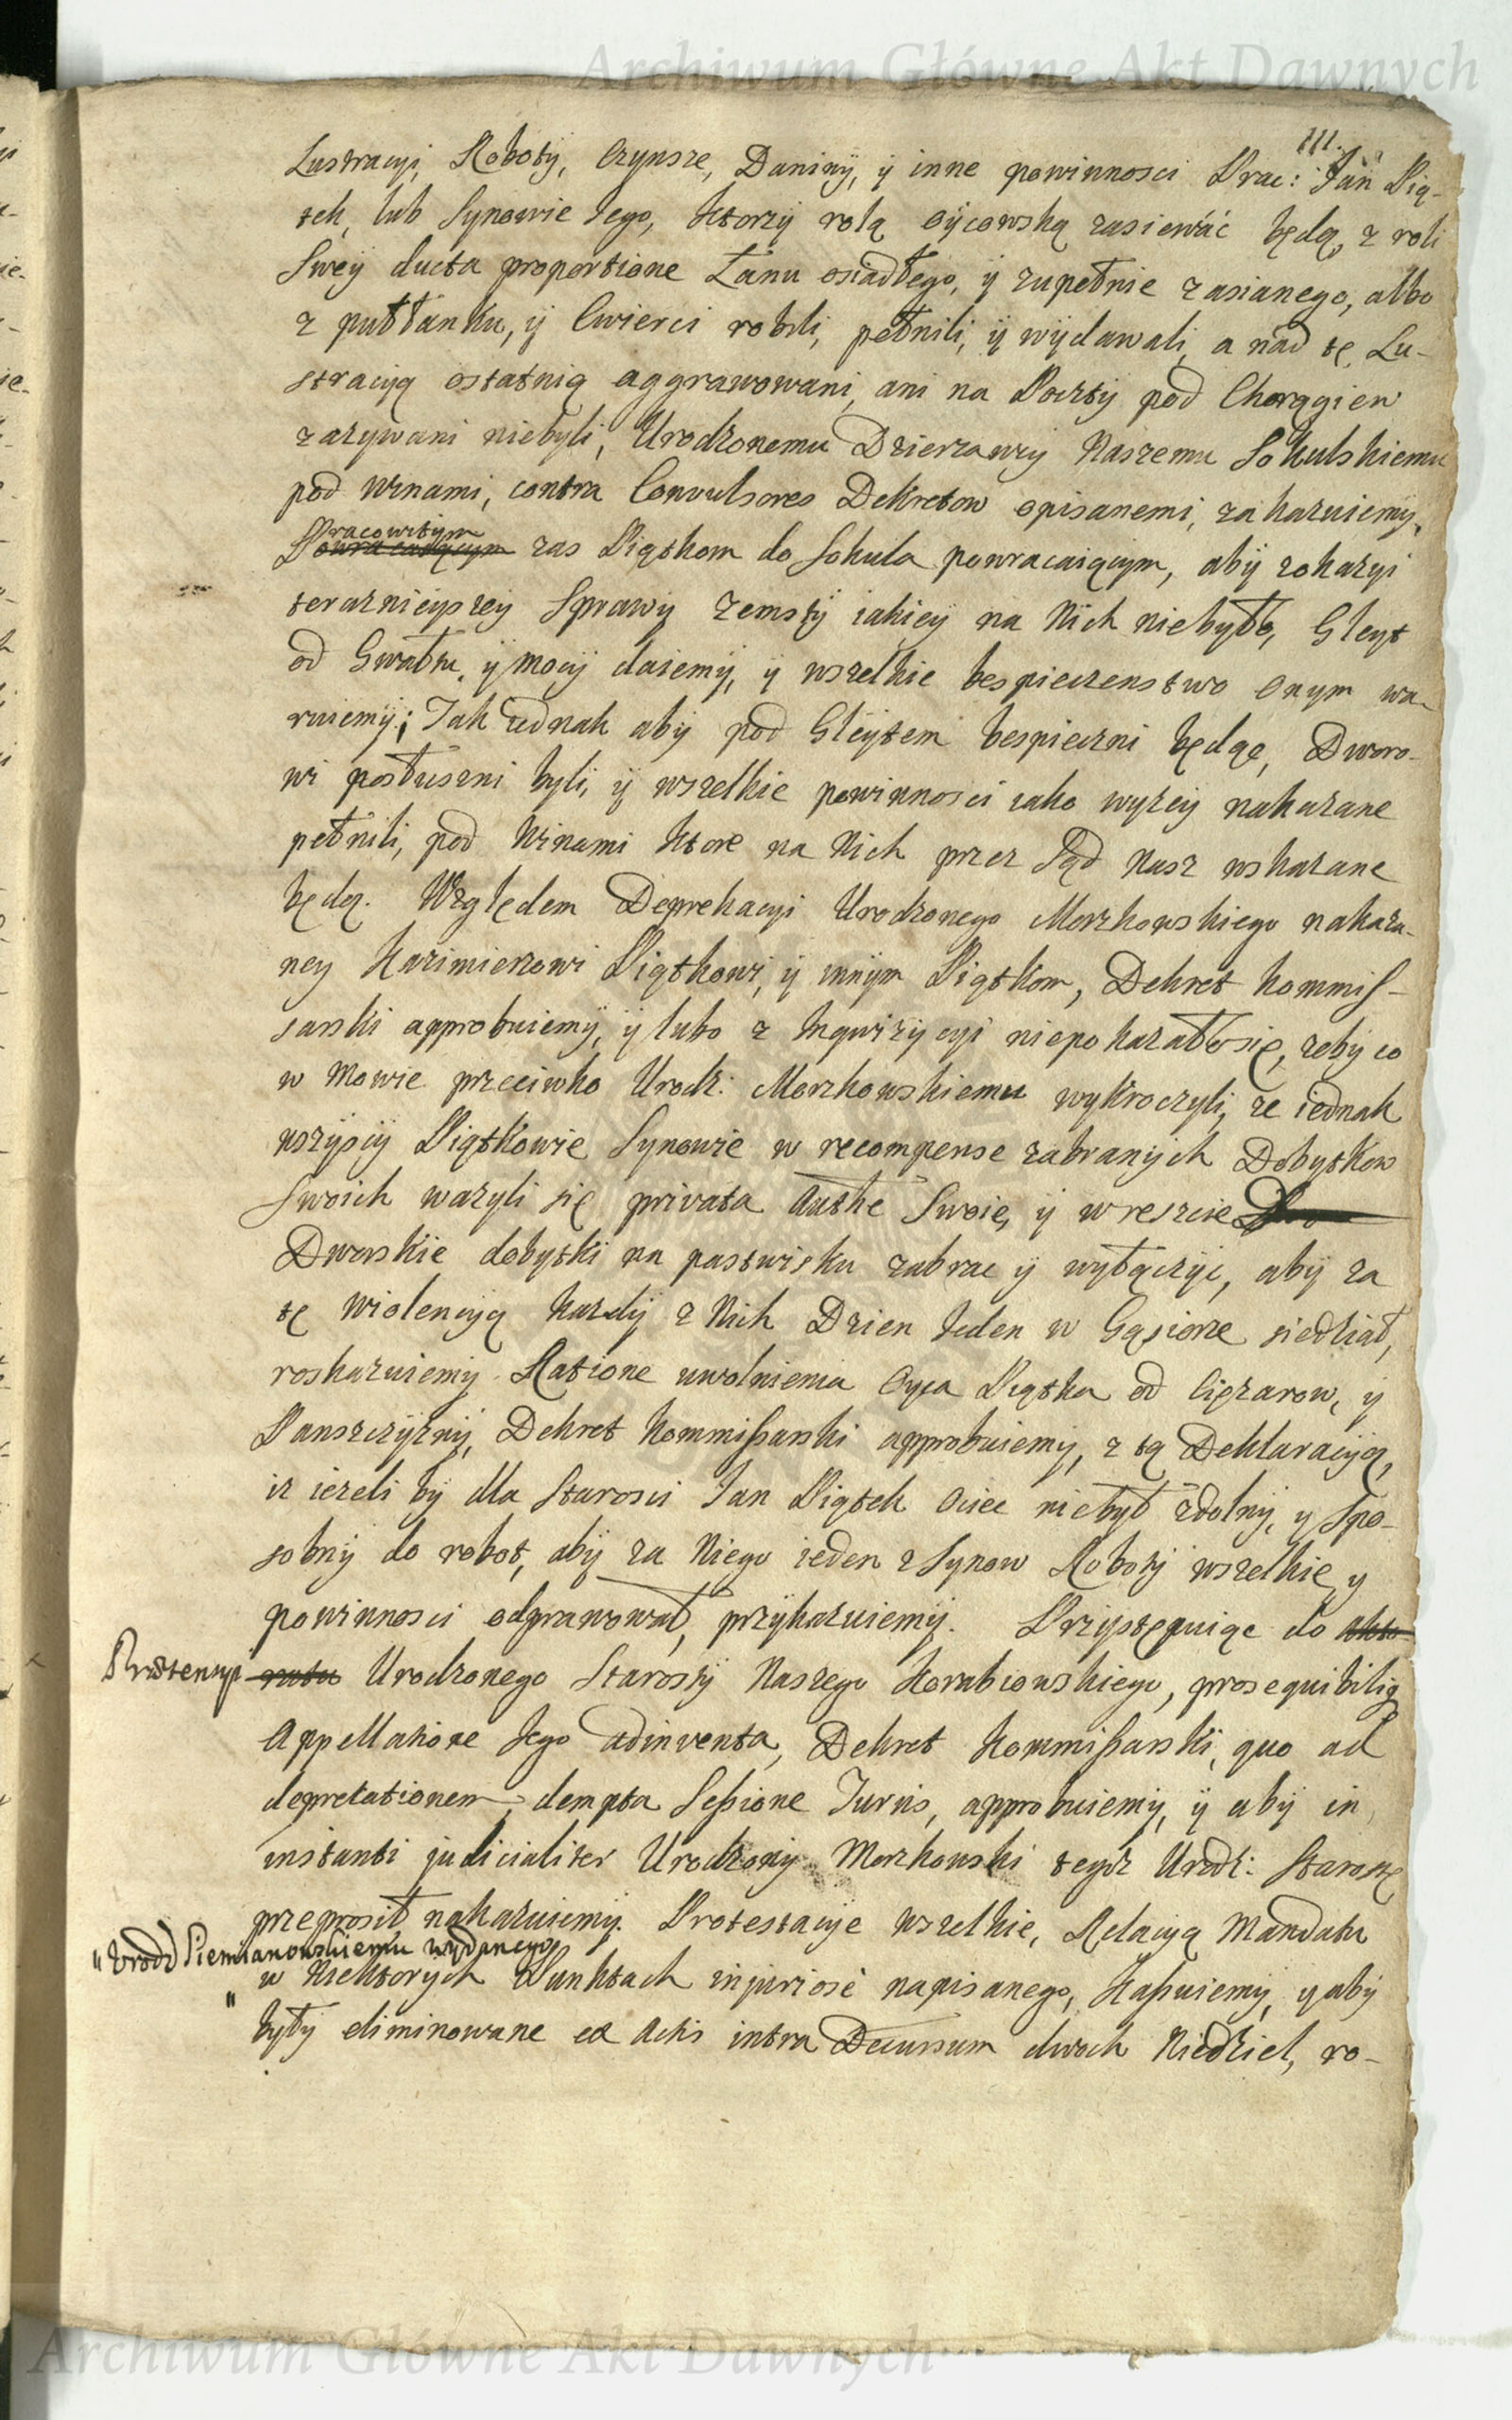 Archiwum Główne Akt Dawnych
111.
Lustracyi, Roboty, Czynsze, Daniny, ÿ inne powinnosci Prac: Jan Pią-
tek, lub Synowie Jego, ktorzy rolą oÿcowską zasiewać będą, z roli
Swey ducta proportione Łanu osiadłego, ÿ zupełnie zasianego, albo
z pułłanku, ÿ Cwierci robili, pełnili, ÿ wÿdawali, a nad tę Lu-
stracyą ostatnią aggrawowani, ani na Poczty pod Chorągiew
zazywani niebyli, Urodzonemu Dzierzawcy Naszemu Sokulskiemu
pod winami, contra Convulsores Dekretow opisanemi, zakazuiemy.
Pracowitym
Powracaiącym zas Piątkom do Sokula powracaiącym, abÿ zokazyi
terazniejszey Sprawy Zemsty iakiey na Nich niebyło, Gleyt
od Gwałtu, ÿ mocy daiemÿ, ÿ wszelkie bespieczenstwo onym wa-
ruiemÿ; Jak iednak abÿ pod Gleÿtem bespieczni będąc, Dworo-
wi posłuszni byli, ÿ wszelkie powinnosci iako wyzey nakazane
pełnili, pod Winami ktore na Nich przez Sąd Nasz wskazane
będą. Względem Deprekacyi Urodzonego Morzkowskiego nakaza-
ney Kazimierzowi Piątkowi, ÿ innÿm Piątkom, Dekret Kommis-
sarski approbuiemÿ, ÿ lubo z Inqwizycyi niepokazało się, zeby co
w Mowie przeciwko Urodz: Morzkowskiemu wykroczyli, ze iednak
wszÿscÿ Piątkowie Synowie w recompense zabranÿch Dobytkow
Swoich wazyli się privata Authe Swoie, ÿ w reszcie
Dworskie dobytki na pastwisku zabrac ÿ wyłączÿc, abÿ za
tę wiolencyą kazdÿ z Nich Dzien Jeden w Gąsiorze siedział,
roskazuiemy. Ratione uwolnienia Oyca Piątka od Cięzarow, ÿ
Panszczÿznÿ, Dekret Kommissarski approbuiemy, z tą Deklaracyą,
iz iezeli bÿ dla Starosci Jan Piątek Ociec niebył zdolnÿ, y Spo-
sobnÿ do robot, abÿ za Niego ieden z Synow Roboty wszelkie, y
powinnosci odprawował, przÿkazuiemÿ. Przystępuiąc do
Prætensyi
Urodzonego Starosty Naszego Korabiowskiego, prosequibiliq
Appellatione Jego adinventa, Dekret Kommissarski, quo ad
deprecationem, dempta Sessione Turris, approbuiemy, ÿ abÿ in
instanti judicialiter Urodzony Morzkowski tegoz Urodz: Starostę
przeprosił nakazuiemÿ. Protestacye wszelkie, Relacyą Mandatu
" Urodz Siemianowskiemu wydanego
w Niektorych Punktach injuriosè napisanego, Kassuiemÿ, y abÿ
były eliminowane ex Actis intra Decursum dwoch Niedziel, ro-
Archiwum Główne Akt Dawnych